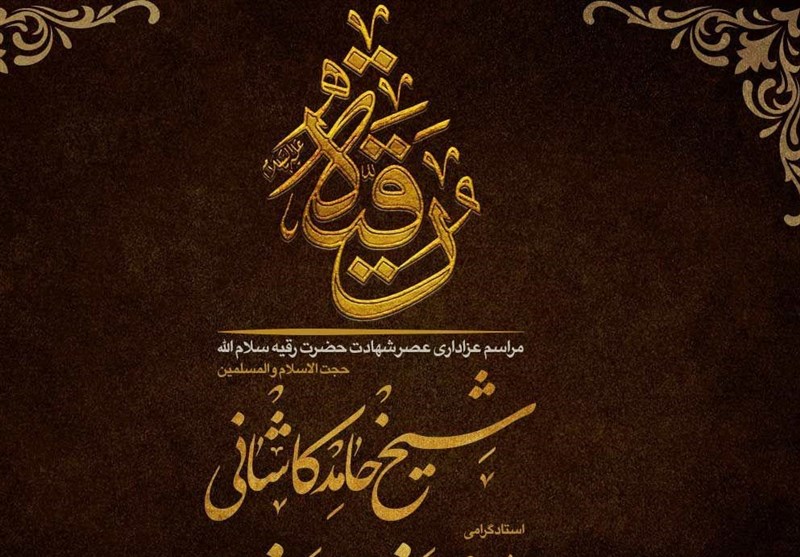 رقیة
علیها السلام
مراسم عزاداری عصر شهادت حضرت رقیه سلام الله
حجت الاسلام والمسلمین
شیخ حامد کاشانی
استاد گرامی